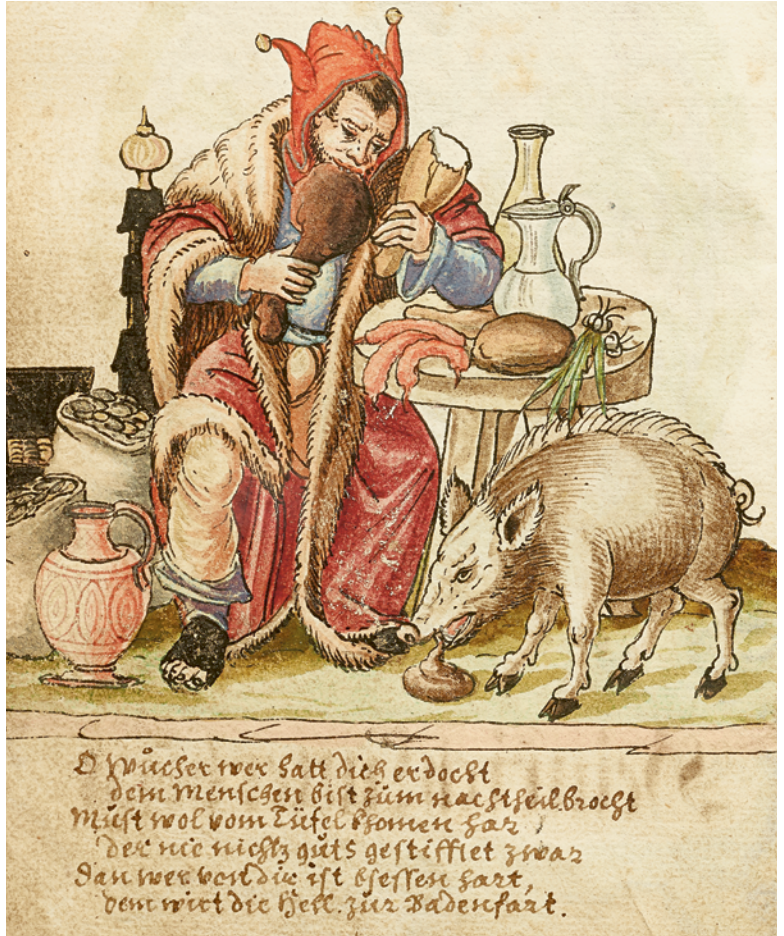 O Wůcher wer hatt dich erdocht
dem Menschen bist zům nachtheil brocht
Můst wol vom Tüfel khomen har,
der nie nichtz gůts gestifftet zwar
Dan wer von dir ist bsessen hart,
dem wirt die Hell zůr Badenfart.